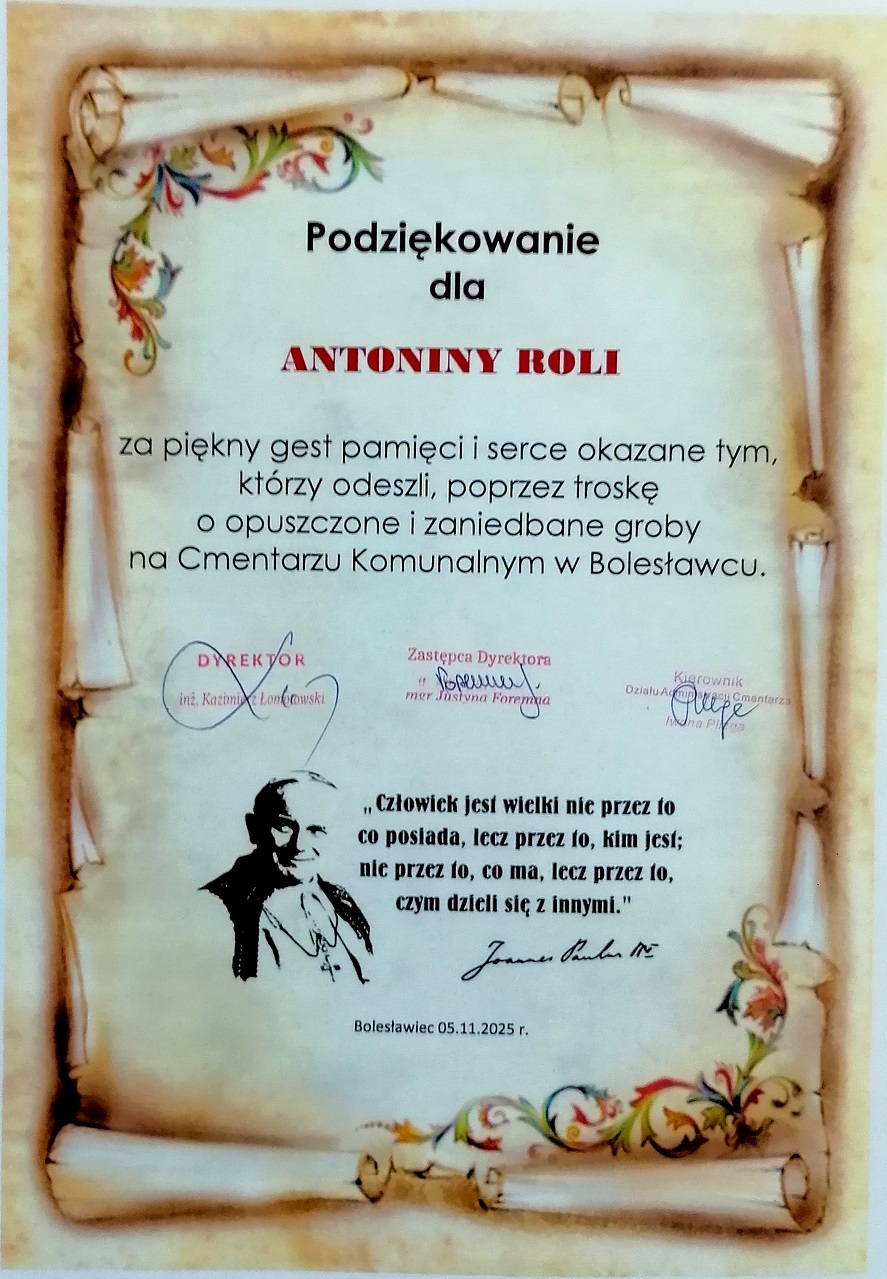 Podziękowanie
dla
ANTONINY ROLI
za piękny gest pamięci i serce okazane tym,
którzy odeszli, poprzez troskę
o opuszczone i zaniedbane groby
na Cmentarzu Komunalnym w Bolesławcu.
DYREKTOR
inż. Kazimierz
Zastępca Dyrektora
mgr Justyna Foremna
Kierownik
Działu Administracji Cmentarza
Iwona
„Człowiek jest wielki nie przez to
co posiada, lecz przez to, kim jest;
nie przez to, co ma, lecz przez to,
czym dzieli się z innymi."
Joannes Paulus II
Bolesławiec 05.11.2025 r.